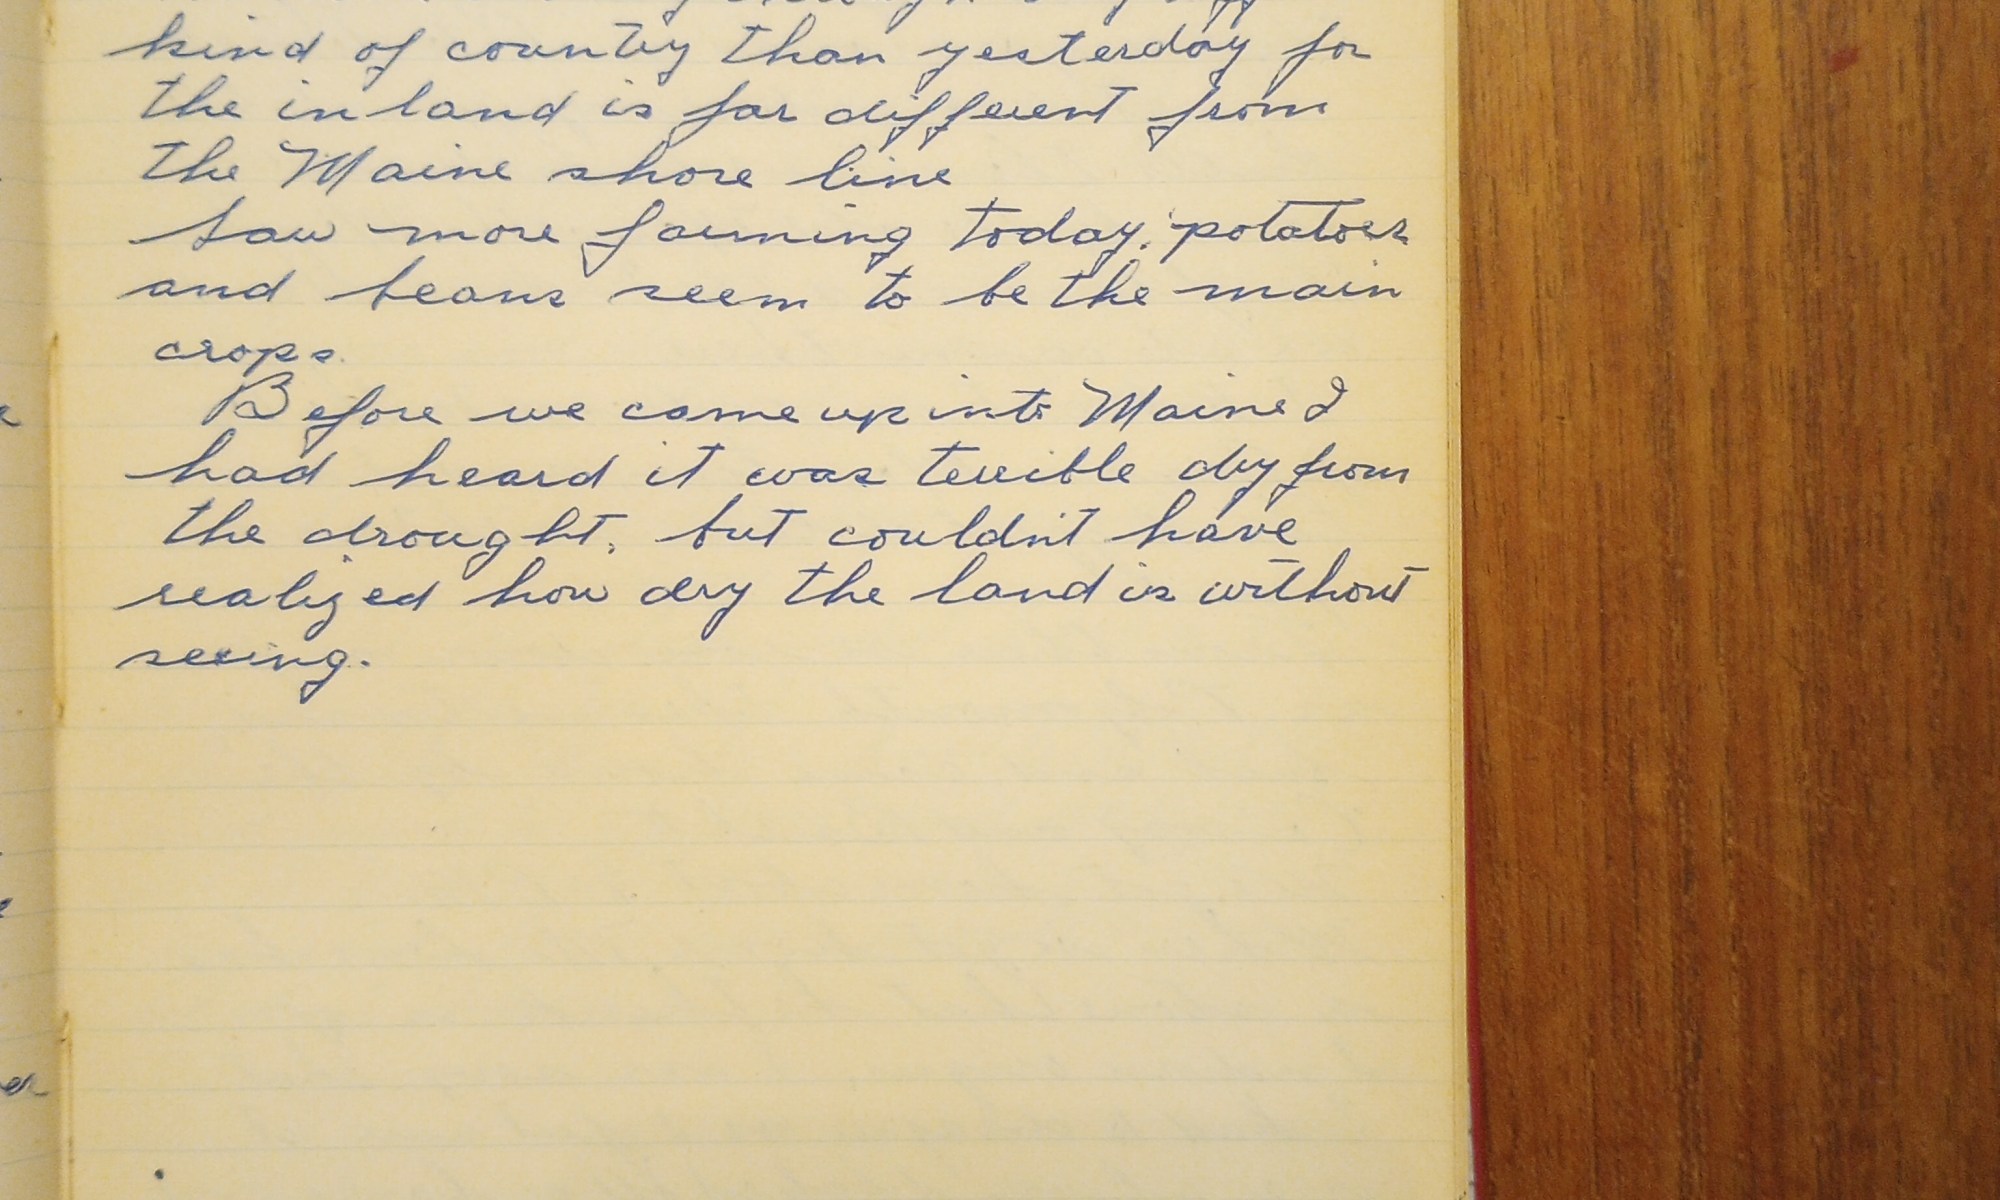 kind of country than yesterday for
the inland is far different from
the Maine shore line
Saw more farming today, potatoes
and beans seem to be the main
crops.
Before we came up into Maine I
had heard it was terrible dry from
the drought, but couldn't have
realized how dry the land is without
seeing.